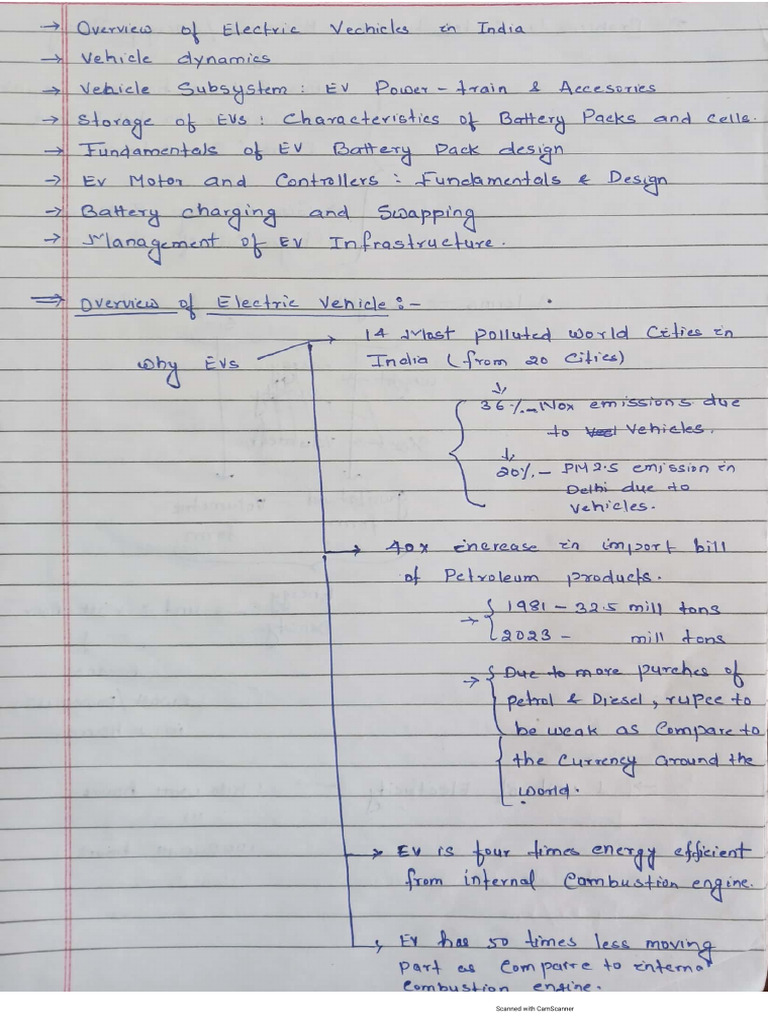 → Overview of Electric Vechicles in India
→ Vehicle dynamics
→ Vehicle Subsystem : EV Power-train & Accesories
→ Storage of EVs : Characteristics of Battery Packs and cells.
→ Fundamentals of EV Battery Pack design
→ EV Motor and Controllers : Fundamentals & Design
→ Battery charging and Swapping
→ Management of EV Infrastructure.
⇒ Overview of Electric Vehicle :-
→ 14 Most polluted world Cities in
why EVs
India (from 20 Cities)
↓
36% - NOx emissions due
to Vehicles.
↓
20% - PM 2.5 emission in
Delhi due to
vehicles.
→ 40x increase in import bill
of Petroleum products.
→ { 1981 - 32.5 mill tons
2023 - mill tons
→ { Due to more purches of
petrol & Diesel, rupee to
be weak as compare to
the currency around the
world.
→ EV is four times energy efficient
from internal combustion engine.
→ EV has 50 times less moving
part as comparre to internal
combustion engine.
Scanned with CamScanner